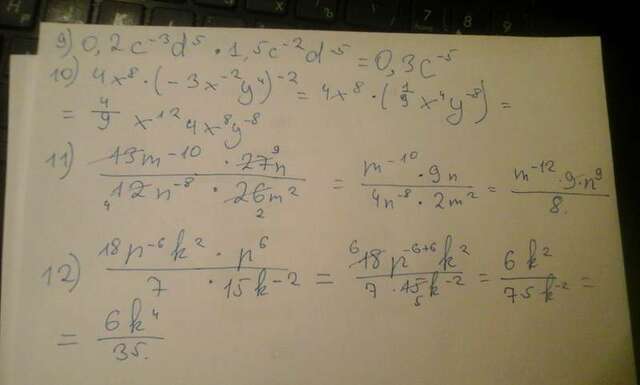 9) 0,2c⁻³d⁵ · 1,5c⁻²d⁻⁵ = 0,3c⁻⁵
10) 4x⁸ · (-3x⁻²y⁴)⁻² = 4x⁸ · (1/9 x⁴y⁻⁸) =
= 4/9 x¹² 4x⁸y⁻⁸
11) (13m⁻¹⁰ · 27n)/(12n⁻⁸ · 26m²) = (m⁻¹⁰ · 9n)/(4n⁻⁸ · 2m²) = (m⁻¹² · 9 · n⁹)/8.
12) (18p⁻⁶k² · p⁶)/(7 · 15k⁻²) = (18p⁻⁶⁺⁶k²)/(7 · 15k⁻²) = (6k²)/(7 5k⁻²) =
= 6k⁴/35.